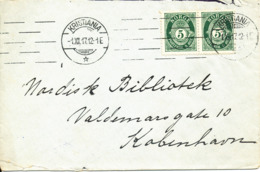 KRISTIANIA
-1.XII.17.12-1E
NORGE NORGE
5 5
Nordisk Bibliotek
Valdemarsgade 10
København